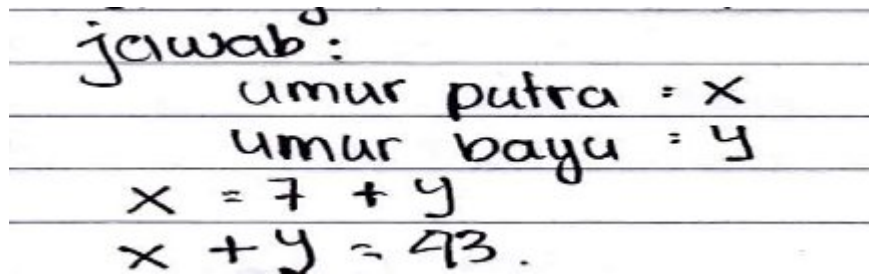 jawab:
umur putra = x
umur bayu = y
x = 7 + y
x + y = 43.